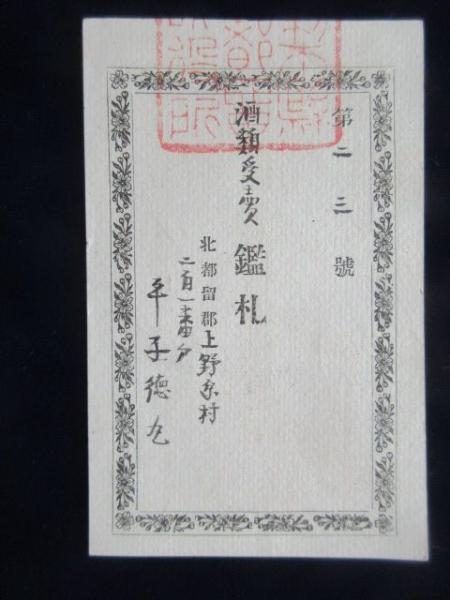 第二三號
酒類受賣鑑札
北都留郡上野原村
二百一番戸
平子德